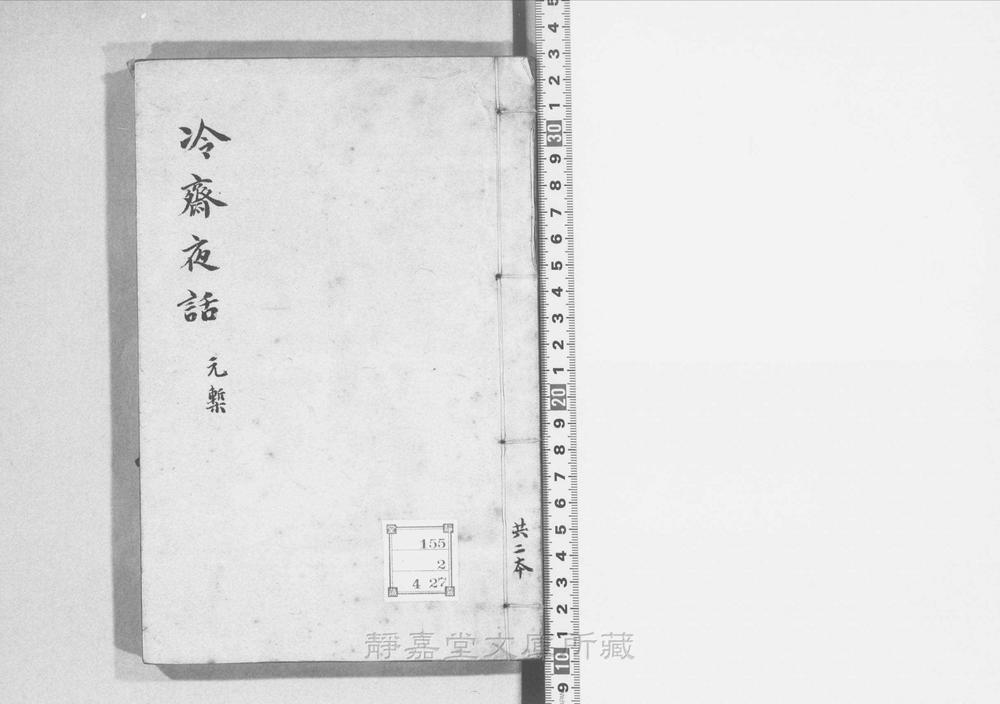 冷齋夜話
元槧
共二本
155
2
4 27
靜嘉堂文庫所藏
5
4
3
2
1
30
9
8
7
6
5
4
3
2
1
20
9
8
7
6
5
4
3
2
1
10
9